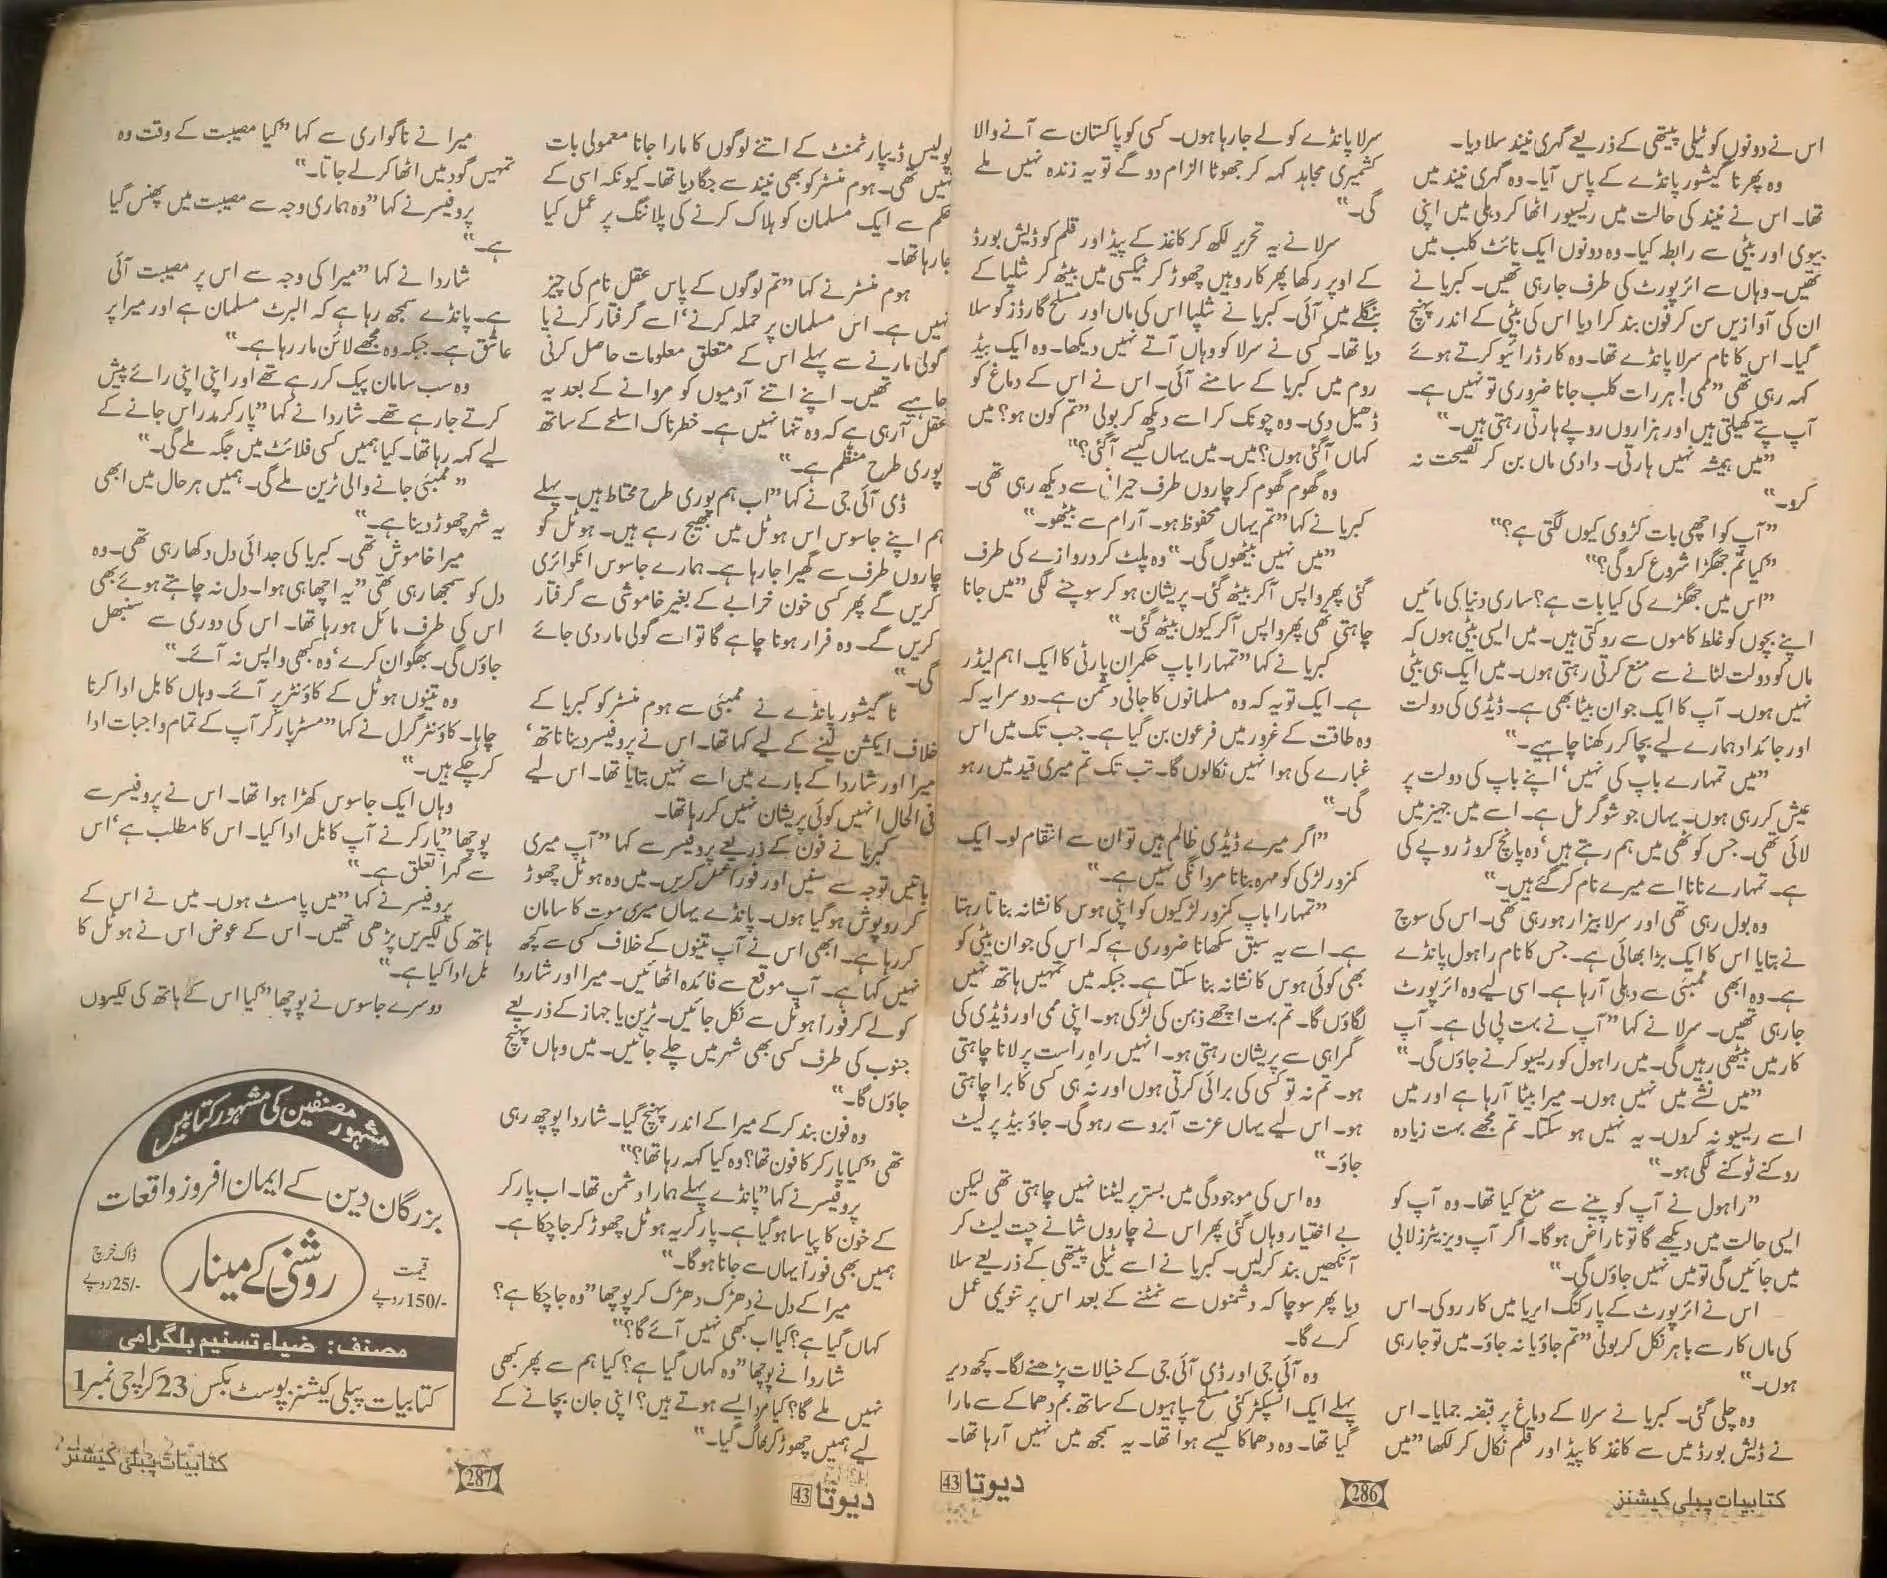 اس نے دونوں کو ٹیلی پیتھی کے ذریعے گہری نیند سلا دیا۔
وہ پھر ناگیشور پانڈے کے پاس آیا۔ وہ گہری نیند میں
تھا۔ اس نے نیند کی حالت میں ریسیور اٹھا کر دہلی میں اپنی
بیوی اور بیٹی سے رابطہ کیا۔ وہ دونوں ایک نائٹ کلب میں
تھیں۔ وہاں سے ائرپورٹ کی طرف جا رہی تھیں۔ کبریا نے
ان کی آوازیں سن کر فون بند کرا دیا اس کی بیٹی کے اندر پہنچ
گیا۔ اس کا نام سرلا پانڈے تھا۔ وہ کار ڈرائیو کرتے ہوئے
کہہ رہی تھی "ممی! ہر رات کلب جانا ضروری تو نہیں ہے۔
آپ پتے کھیلتی ہیں اور ہزاروں روپے ہارتی رہتی ہیں۔"
"میں ہمیشہ نہیں ہارتی۔ دادی ماں بن کر نصیحت نہ
کرو۔"
"آپ کو اچھی بات کڑوی کیوں لگتی ہے؟"
"کیا تم جھگڑا شروع کرو گی؟"
"اس میں جھگڑے کی کیا بات ہے؟ ساری دنیا کی مائیں
اپنے بچوں کو غلط کاموں سے روکتی ہیں۔ میں ایسی بیٹی ہوں کہ
ماں کو دولت لٹانے سے منع کرتی رہتی ہوں۔ میں ایک ہی بیٹی
نہیں ہوں۔ آپ کا ایک جوان بیٹا بھی ہے۔ ڈیڈی کی دولت
اور جائداد ہمارے لیے بچا کر رکھنا چاہیے۔"
"میں تمہارے باپ کی نہیں' اپنے باپ کی دولت پر
عیش کر رہی ہوں۔ یہاں جو شوگر مل ہے۔ اسے میں جہیز میں
لائی تھی۔ جس کوٹھی میں ہم رہتے ہیں' وہ پانچ کروڑ روپے کی
ہے۔ تمہارے نانا اسے میرے نام کر گئے ہیں۔"
وہ بول رہی تھی اور سرلا بیزار ہو رہی تھی۔ اس کی سوچ
نے بتایا اس کا ایک بڑا بھائی ہے۔ جس کا نام راہول پانڈے
ہے۔ وہ ابھی ممبئی سے دہلی آ رہا ہے۔ اسی لیے وہ ائرپورٹ
جا رہی تھیں۔ سرلا نے کہا "آپ نے بہت پی لی ہے۔ آپ
کار میں بیٹھی رہیں گی۔ میں راہول کو ریسیو کرنے جاؤں گی۔"
"میں نشے میں نہیں ہوں۔ میرا بیٹا آ رہا ہے اور میں
اسے ریسیو نہ کروں۔ یہ نہیں ہو سکتا۔ تم مجھے بہت زیادہ
روکنے ٹوکنے لگی ہو۔"
"راہول نے آپ کو پینے سے منع کیا تھا۔ وہ آپ کو
ایسی حالت میں دیکھے گا تو ناراض ہو گا۔ اگر آپ ویزیٹرز لابی
میں جائیں گی تو میں نہیں جاؤں گی۔"
اس نے ائرپورٹ کے پارکنگ ایریا میں کار روکی۔ اس
کی ماں کار سے باہر نکل کر بولی "تم جاؤ یا نہ جاؤ۔ میں تو جا رہی
ہوں۔"
وہ چلی گئی۔ کبریا نے سرلا کے دماغ پر قبضہ جمایا۔ اس
نے ڈیش بورڈ میں سے کاغذ کا پیڈ اور قلم نکال کر لکھا "میں
سرلا پانڈے کو لے جا رہا ہوں۔ کسی کو پاکستان سے آنے والا
کشمیری مجاہد کہہ کر جھوٹا الزام دو گے تو یہ زندہ نہیں ملے
گی۔"
سرلا نے یہ تحریر لکھ کر کاغذ کے پیڈ اور قلم کو ڈیش بورڈ
کے اوپر رکھا پھر کار وہیں چھوڑ کر ٹیکسی میں بیٹھ کر شلپا کے
بنگلے میں آئی۔ کبریا نے شلپا اس کی ماں اور مسلح گارڈز کو سلا
دیا تھا۔ کسی نے سرلا کو وہاں آتے نہیں دیکھا۔ وہ ایک بیڈ
روم میں کبریا کے سامنے آئی۔ اس نے اس کے دماغ کو
ڈھیل دی۔ وہ چونک کر اسے دیکھ کر بولی "تم کون ہو؟ میں
کہاں آ گئی ہوں؟ میں۔ میں یہاں کیسے آ گئی؟"
وہ گھوم گھوم کر چاروں طرف حیرانی سے دیکھ رہی تھی۔
کبریا نے کہا "تم یہاں محفوظ ہو۔ آرام سے بیٹھو۔"
"میں نہیں بیٹھوں گی۔" وہ پلٹ کر دروازے کی طرف
گئی پھر واپس آ کر بیٹھ گئی۔ پریشان ہو کر سوچنے لگی "میں جانا
چاہتی تھی پھر واپس آ کر کیوں بیٹھ گئی۔"
کبریا نے کہا "تمہارا باپ حکمران پارٹی کا ایک اہم لیڈر
ہے۔ ایک تو یہ کہ وہ مسلمانوں کا جانی دشمن ہے۔ دوسرا یہ کہ
وہ طاقت کے غرور میں فرعون بن گیا ہے۔ جب تک میں اس
غبارے کی ہوا نہیں نکالوں گا۔ تب تک تم میری قید میں رہو
گی۔"
"اگر میرے ڈیڈی ظالم ہیں تو ان سے انتقام لو۔ ایک
کمزور لڑکی کو مہرہ بنانا مردانگی نہیں ہے۔"
"تمہارا باپ کمزور لڑکیوں کو اپنی ہوس کا نشانہ بناتا رہتا
ہے۔ اسے یہ سبق سکھانا ضروری ہے کہ اس کی جوان بیٹی کو
بھی کوئی ہوس کا نشانہ بنا سکتا ہے۔ جبکہ میں تمہیں ہاتھ نہیں
لگاؤں گا۔ تم بہت اچھے ذہن کی لڑکی ہو۔ اپنی ممی اور ڈیڈی کی
گمراہی سے پریشان رہتی ہو۔ انہیں راہِ راست پر لانا چاہتی
ہو۔ تم نہ تو کسی کی برائی کرتی ہوں اور نہ ہی کسی کا برا چاہتی
ہو۔ اس لیے یہاں عزت آبرو سے رہو گی۔ جاؤ بیڈ پر لیٹ
جاؤ۔"
وہ اس کی موجودگی میں بستر پر لیٹنا نہیں چاہتی تھی لیکن
بے اختیار وہاں گئی پھر اس نے چاروں شانے چت لیٹ کر
آنکھیں بند کر لیں۔ کبریا نے اسے ٹیلی پیتھی کے ذریعے سلا
دیا پھر سوچا کہ دشمنوں سے نمٹنے کے بعد اس پر تنویمی عمل
کرے گا۔
وہ آئی جی اور ڈی آئی جی کے خیالات پڑھنے لگا۔ کچھ دیر
پہلے ایک انسپکٹر کئی مسلح سپاہیوں کے ساتھ بم دھماکے سے مارا
گیا تھا۔ وہ دھماکا کیسے ہوا تھا۔ یہ سمجھ میں نہیں آ رہا تھا۔
کتابیات پبلی کیشنز
286
دیوتا 43
پولیس ڈیپارٹمنٹ کے اتنے لوگوں کا مارا جانا معمولی بات
نہیں تھی۔ ہوم منسٹر کو بھی نیند سے جگا دیا تھا۔ کیونکہ اسی کے
حکم سے ایک مسلمان کو ہلاک کرنے کی پلاننگ پر عمل کیا
جا رہا تھا۔
ہوم منسٹر نے کہا "تم لوگوں کے پاس عقل نام کی چیز
نہیں ہے۔ اس مسلمان پر حملہ کرنے' اسے گرفتار کرنے یا
گولی مارنے سے پہلے اس کے متعلق معلومات حاصل کرنی
چاہیے تھیں۔ اپنے اتنے آدمیوں کو مروانے کے بعد یہ
عقل آ رہی ہے کہ وہ تنہا نہیں ہے۔ خطرناک اسلحے کے ساتھ
پوری طرح منظم ہے۔"
ڈی آئی جی نے کہا "اب ہم پوری طرح محتاط ہیں۔ پہلے
ہم اپنے جاسوس اس ہوٹل میں بھیج رہے ہیں۔ ہوٹل کو
چاروں طرف سے گھیرا جا رہا ہے۔ ہمارے جاسوس انکوائری
کریں گے پھر کسی خون خرابے کے بغیر خاموشی سے گرفتار
کریں گے۔ وہ فرار ہونا چاہے گا تو اسے گولی مار دی جائے
گی۔"
ناگیشور پانڈے نے ممبئی سے ہوم منسٹر کو کبریا کے
خلاف ایکشن لینے کے لیے کہا تھا۔ اس نے پروفیسر دینا ناتھ'
میرا اور شاردا کے بارے میں اسے نہیں بتایا تھا۔ اس لیے
فی الحال انہیں کوئی پریشان نہیں کر رہا تھا۔
کبریا نے فون کے ذریعے پروفیسر سے کہا "آپ میری
باتیں توجہ سے سنیں اور فوراً عمل کریں۔ میں وہ ہوٹل چھوڑ
کر روپوش ہو گیا ہوں۔ پانڈے یہاں میری موت کا سامان
کر رہا ہے۔ ابھی اس نے آپ تینوں کے خلاف کسی سے کچھ
نہیں کہا ہے۔ آپ موقع سے فائدہ اٹھائیں۔ میرا اور شاردا
کو لے کر فوراً ہوٹل سے نکل جائیں۔ ٹرین یا جہاز کے ذریعے
جنوب کی طرف کسی بھی شہر میں چلے جائیں۔ میں وہاں پہنچ
جاؤں گا۔"
وہ فون بند کر کے میرا کے اندر پہنچ گیا۔ شاردا پوچھ رہی
تھی "کیا پارکر کا فون تھا؟ وہ کیا کہہ رہا تھا؟"
پروفیسر نے کہا "پانڈے پہلے ہمارا دشمن تھا۔ اب پارکر
کے خون کا پیاسا ہو گیا ہے۔ پارکر یہ ہوٹل چھوڑ کر جا چکا ہے۔
ہمیں بھی فوراً یہاں سے جانا ہو گا۔"
میرا کے دل نے دھڑک دھڑک کر پوچھا "وہ جا چکا ہے؟
کہاں گیا ہے؟ کیا اب کبھی نہیں آئے گا؟"
شاردا نے پوچھا "وہ کہاں گیا ہے؟ کیا ہم سے پھر کبھی
نہیں ملے گا؟ کیا مرد ایسے ہوتے ہیں؟ اپنی جان بچانے کے
لیے ہمیں چھوڑ کر بھاگ گیا۔"
میرا نے ناگواری سے کہا "کیا مصیبت کے وقت وہ
تمہیں گود میں اٹھا کر لے جاتا۔"
پروفیسر نے کہا "وہ ہماری وجہ سے مصیبت میں پھنس گیا
ہے۔"
شاردا نے کہا "میرا کی وجہ سے اس پر مصیبت آئی
ہے۔ پانڈے سمجھ رہا ہے کہ البرٹ مسلمان ہے اور میرا پر
عاشق ہے۔ جبکہ وہ مجھے لائن مار رہا ہے۔"
وہ سب سامان پیک کر رہے تھے اور اپنی اپنی رائے پیش
کرتے جا رہے تھے۔ شاردا نے کہا "پارکر مدراس جانے کے
لیے کہہ رہا تھا۔ کیا ہمیں کسی فلائٹ میں جگہ ملے گی۔"
"ممبئی جانے والی ٹرین ملے گی۔ ہمیں ہر حال میں ابھی
یہ شہر چھوڑ دینا ہے۔"
میرا خاموش تھی۔ کبریا کی جدائی دل دکھا رہی تھی۔ وہ
دل کو سمجھا رہی تھی "یہ اچھا ہی ہوا۔ دل نہ چاہتے ہوئے بھی
اس کی طرف مائل ہو رہا تھا۔ اس کی دوری سے سنبھل
جاؤں گی۔ بھگوان کرے' وہ کبھی واپس نہ آئے۔"
وہ تینوں ہوٹل کے کاؤنٹر پر آئے۔ وہاں کا بل ادا کرنا
چاہا۔ کاؤنٹر گرل نے کہا "مسٹر پارکر آپ کے تمام واجبات ادا
کر چکے ہیں۔"
وہاں ایک جاسوس کھڑا ہوا تھا۔ اس نے پروفیسر سے
پوچھا "پارکر نے آپ کا بل ادا کیا۔ اس کا مطلب ہے' اس
سے گہرا تعلق ہے۔"
پروفیسر نے کہا "میں پامسٹ ہوں۔ میں نے اس کے
ہاتھ کی لکیریں پڑھی تھیں۔ اس کے عوض اس نے ہوٹل کا
بل ادا کیا ہے۔"
دوسرے جاسوس نے پوچھا "کیا اس کے ہاتھ کی لکیروں
مشہور مصنفین کی مشہور کتابیں
بزرگان دین کے ایمان افروز واقعات
روشنی کے مینار
قیمت
150/- روپے
ڈاک خرچ
25/- روپے
مصنف: ضیاء تسنیم بلگرامی
کتابیات پبلی کیشنز پوسٹ بکس 23 کراچی نمبر 1
دیوتا 43
287
کتابیات پبلی کیشنز